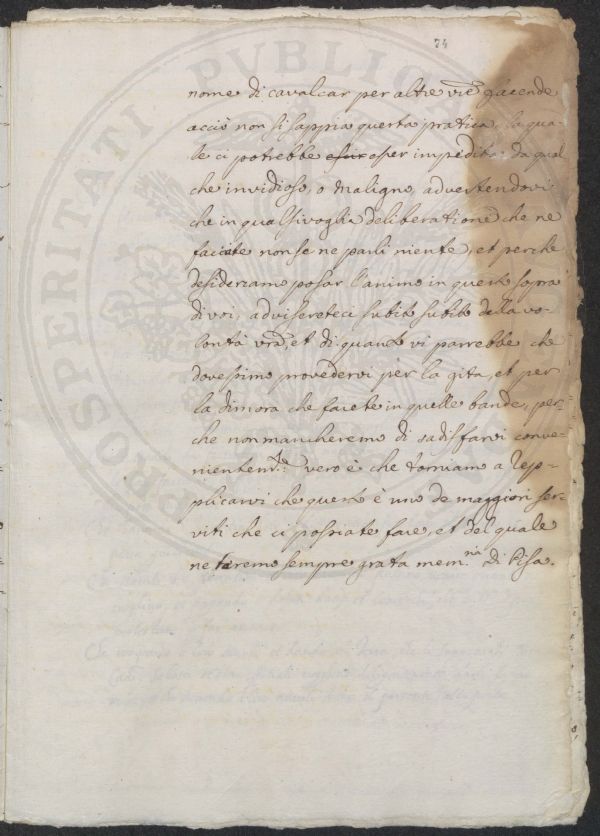 74
nome di cavalcar per altre vie facende
acciò non si sappia questa pratica, la qua-
le ci potrebbe esser impedita da qual
che invidioso, o maligno, advertendovi
che in qual si voglia deliberatione che ne
facciate non se ne parli niente, et perche
desideriamo posar l'animo in questo sopra
di voi, advisereteci subito subito della vo-
lontà vrã, et di quanto vi parrebbe che
dovessimo provedervi per la gita, et per
la dimora che farete in quelle bande, per-
che non mancheremo di sadisfarvi conve-
nientem.te vero è che torniamo a rep-
plicarvi che questo è uno de maggiori ser-
viti che ci possiate fare, et del quale
ne terremo sempre grata mem.ria di Pisa.
PROSPERITATI PUBLICAE